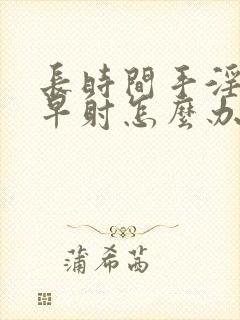 長時間手淫
早射怎麼办
蒲希茜